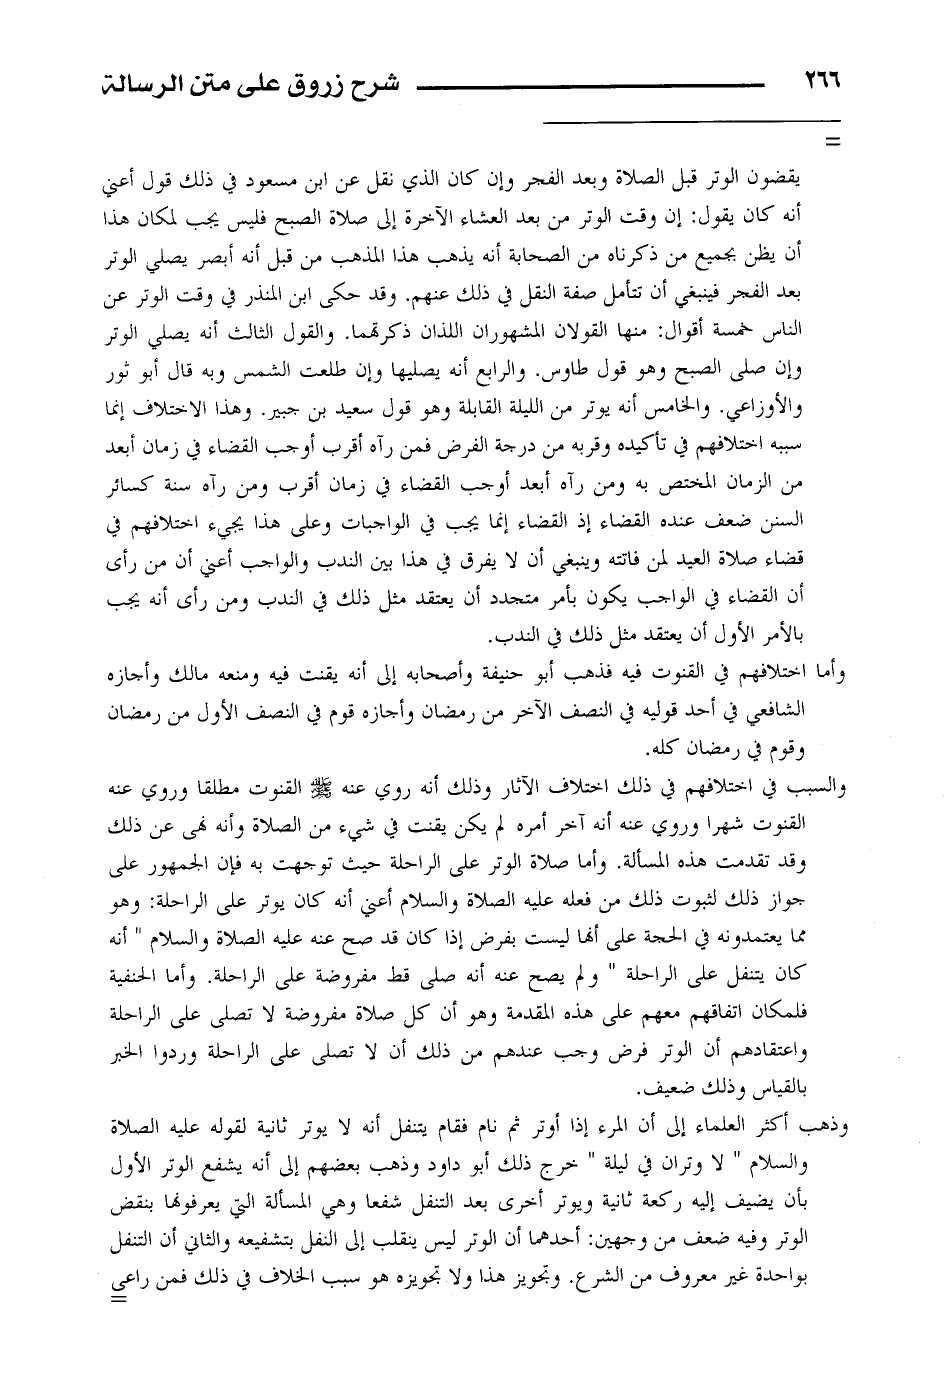 ٢٦٦ شرح زروق على متن الرسالة
=
يقضون الوتر قبل الصلاة وبعد الفجر وإن كان الذي نقل عن ابن مسعود في ذلك قول أعني
أنه كان يقول: إن وقت الوتر من بعد العشاء الآخرة إلى صلاة الصبح فليس يجب لمكان هذا
أن يظن بجميع من ذكرناه من الصحابة أنه يذهب هذا المذهب من قبل أنه أبصر يصلي الوتر
بعد الفجر فينبغي أن تتأمل صفة النقل في ذلك عنهم. وقد حكى ابن المنذر في وقت الوتر عن
الناس خمسة أقوال: منها القولان المشهوران اللذان ذكرتهما. والقول الثالث أنه يصلي الوتر
وإن صلى الصبح وهو قول طاوس. والرابع أنه يصليها وإن طلعت الشمس وبه قال أبو ثور
والأوزاعي. والخامس أنه يوتر من الليلة القابلة وهو قول سعيد بن جبير. وهذا الاختلاف إنما
سببه اختلافهم في تأكيده وقربه من درجة الفرض فمن رآه أقرب أوجب القضاء في زمان أبعد
من الزمان المختص به ومن رآه أبعد أوجب القضاء في زمان أقرب ومن رآه سنة كسائر
السنن ضعف عنده القضاء إذ القضاء إنما يجب في الواجبات وعلى هذا يجيء اختلافهم في
قضاء صلاة العيد لمن فاتته وينبغي أن لا يفرق في هذا بين الندب والواجب أعني أن من رأى
أن القضاء في الواجب يكون بأمر متجدد أن يعتقد مثل ذلك في الندب ومن رأى أنه يجب
بالأمر الأول أن يعتقد مثل ذلك في الندب.
وأما اختلافهم في القنوت فيه فذهب أبو حنيفة وأصحابه إلى أنه يقنت فيه ومنعه مالك وأجازه
الشافعي في أحد قوليه في النصف الآخر من رمضان وأجازه قوم في النصف الأول من رمضان
وقوم في رمضان كله.
والسبب في اختلافهم في ذلك اختلاف الآثار وذلك أنه روي عنه ﷺ القنوت مطلقا وروي عنه
القنوت شهرا وروي عنه أنه آخر أمره لم يكن يقنت في شيء من الصلاة وأنه نهى عن ذلك
وقد تقدمت هذه المسألة. وأما صلاة الوتر على الراحلة حيث توجهت به فإن الجمهور على
جواز ذلك لثبوت ذلك من فعله عليه الصلاة والسلام أعني أنه كان يوتر على الراحلة: وهو
مما يعتمدونه في الحجة على أنها ليست بفرض إذا كان قد صح عنه عليه الصلاة والسلام " أنه
كان يتنفل على الراحلة " ولم يصح عنه أنه صلى قط مفروضة على الراحلة. وأما الحنفية
فلمكان اتفاقهم معهم على هذه المقدمة وهو أن كل صلاة مفروضة لا تصلى على الراحلة
واعتقادهم أن الوتر فرض وجب عندهم من ذلك أن لا تصلى على الراحلة وردوا الخبر
بالقياس وذلك ضعيف.
وذهب أكثر العلماء إلى أن المرء إذا أوتر ثم نام فقام يتنفل أنه لا يوتر ثانية لقوله عليه الصلاة
والسلام " لا وتران في ليلة " خرج ذلك أبو داود وذهب بعضهم إلى أنه يشفع الوتر الأول
بأن يضيف إليه ركعة ثانية ويوتر أخرى بعد التنفل شفعا وهي المسألة التي يعرفونها بنقض
الوتر وفيه ضعف من وجهين: أحدهما أن الوتر ليس ينقلب إلى النفل بتشفيعه والثاني أن التنفل
بواحدة غير معروف من الشرع. وتجويز هذا ولا تجويزه هو سبب الخلاف في ذلك فمن راعى
=